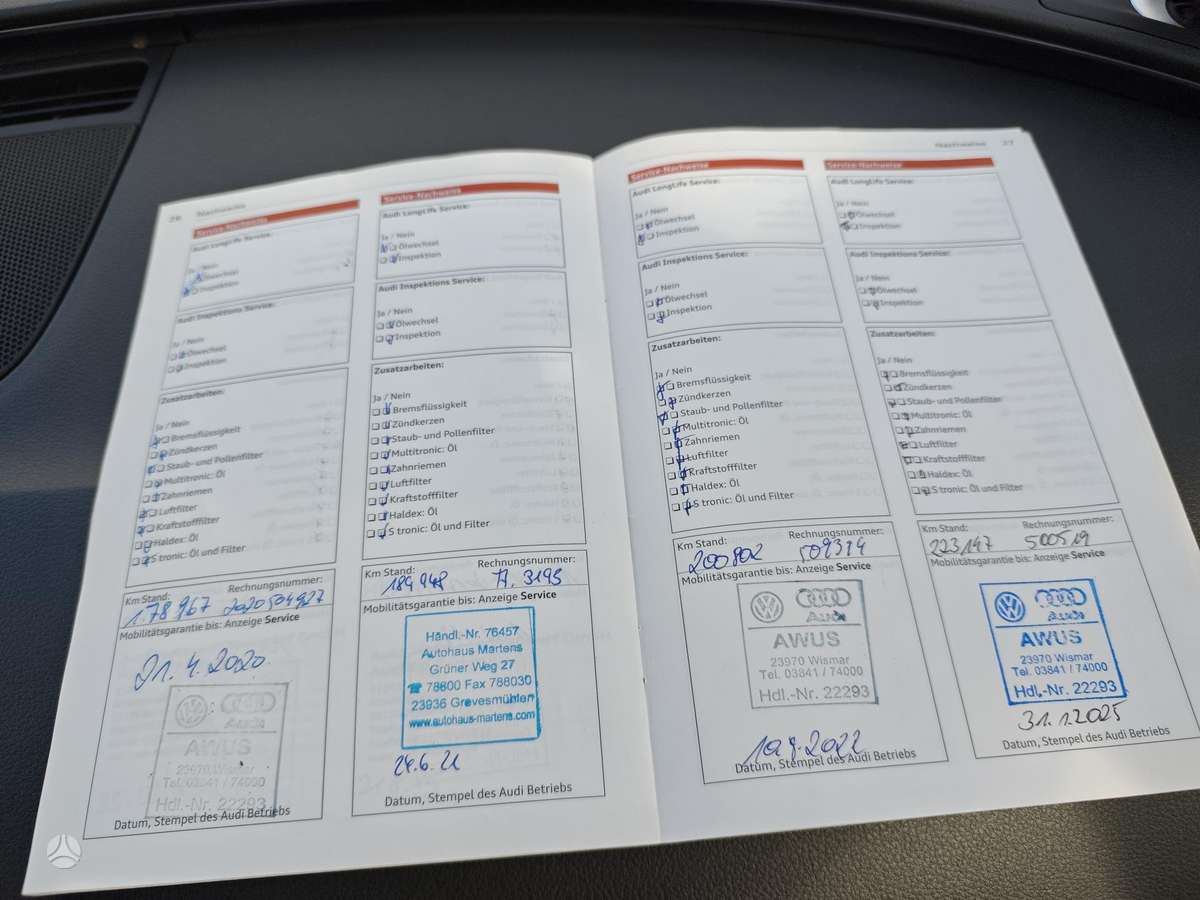 26 Nachweise
Service-Nachweise
Audi LongLife Service:
Ja / Nein
Ölwechsel
Inspektion
Audi Inspektions Service:
Ja / Nein
Ölwechsel
Inspektion
Zusatzarbeiten:
Ja / Nein
Bremsflüssigkeit
Zündkerzen
Staub- und Pollenfilter
Multitronic: Öl
Zahnriemen
Luftfilter
Kraftstofffilter
Haldex: Öl
S tronic: Öl und Filter
Km Stand: Rechnungsnummer:
178 967 2020504927
Mobilitätsgarantie bis: Anzeige Service
21. 4. 2020
Audi
AWUS
23970 Wismar
Tel. 03841 / 74000
Hdl.-Nr. 22293
Datum, Stempel des Audi Betriebs
Service-Nachweise
Audi LongLife Service:
Ja / Nein
Ölwechsel
Inspektion
Audi Inspektions Service:
Ja / Nein
Ölwechsel
Inspektion
Zusatzarbeiten:
Ja / Nein
Bremsflüssigkeit
Zündkerzen
Staub- und Pollenfilter
Multitronic: Öl
Zahnriemen
Luftfilter
Kraftstofffilter
Haldex: Öl
S tronic: Öl und Filter
Km Stand: Rechnungsnummer:
184 948 3195
Mobilitätsgarantie bis: Anzeige Service
Händl.-Nr. 76457
Autohaus Martens
Grüner Weg 27
☎ 78600 Fax 788030
23936 Grevesmühlen
www.autohaus-martens.com
24.6. 21
Datum, Stempel des Audi Betriebs
Nachweise 27
Service-Nachweise
Audi LongLife Service:
Ja / Nein
Ölwechsel
Inspektion
Audi Inspektions Service:
Ja / Nein
Ölwechsel
Inspektion
Zusatzarbeiten:
Ja / Nein
Bremsflüssigkeit
Zündkerzen
Staub- und Pollenfilter
Multitronic: Öl
Zahnriemen
Luftfilter
Kraftstofffilter
Haldex: Öl
S tronic: Öl und Filter
Km Stand: Rechnungsnummer:
200802 509314
Mobilitätsgarantie bis: Anzeige Service
Audi
AWUS
23970 Wismar
Tel. 03841 / 74000
Hdl.-Nr. 22293
Datum, Stempel des Audi Betriebs
Service-Nachweise
Audi LongLife Service:
Ja / Nein
Ölwechsel
Inspektion
Audi Inspektions Service:
Ja / Nein
Ölwechsel
Inspektion
Zusatzarbeiten:
Ja / Nein
Bremsflüssigkeit
Zündkerzen
Staub- und Pollenfilter
Multitronic: Öl
Zahnriemen
Luftfilter
Kraftstofffilter
Haldex: Öl
S tronic: Öl und Filter
Km Stand: Rechnungsnummer:
223147 500519
Mobilitätsgarantie bis: Anzeige Service
Audi
AWUS
23970 Wismar
Tel. 03841 / 74000
Hdl.-Nr. 22293
31.1.2025
Datum, Stempel des Audi Betriebs